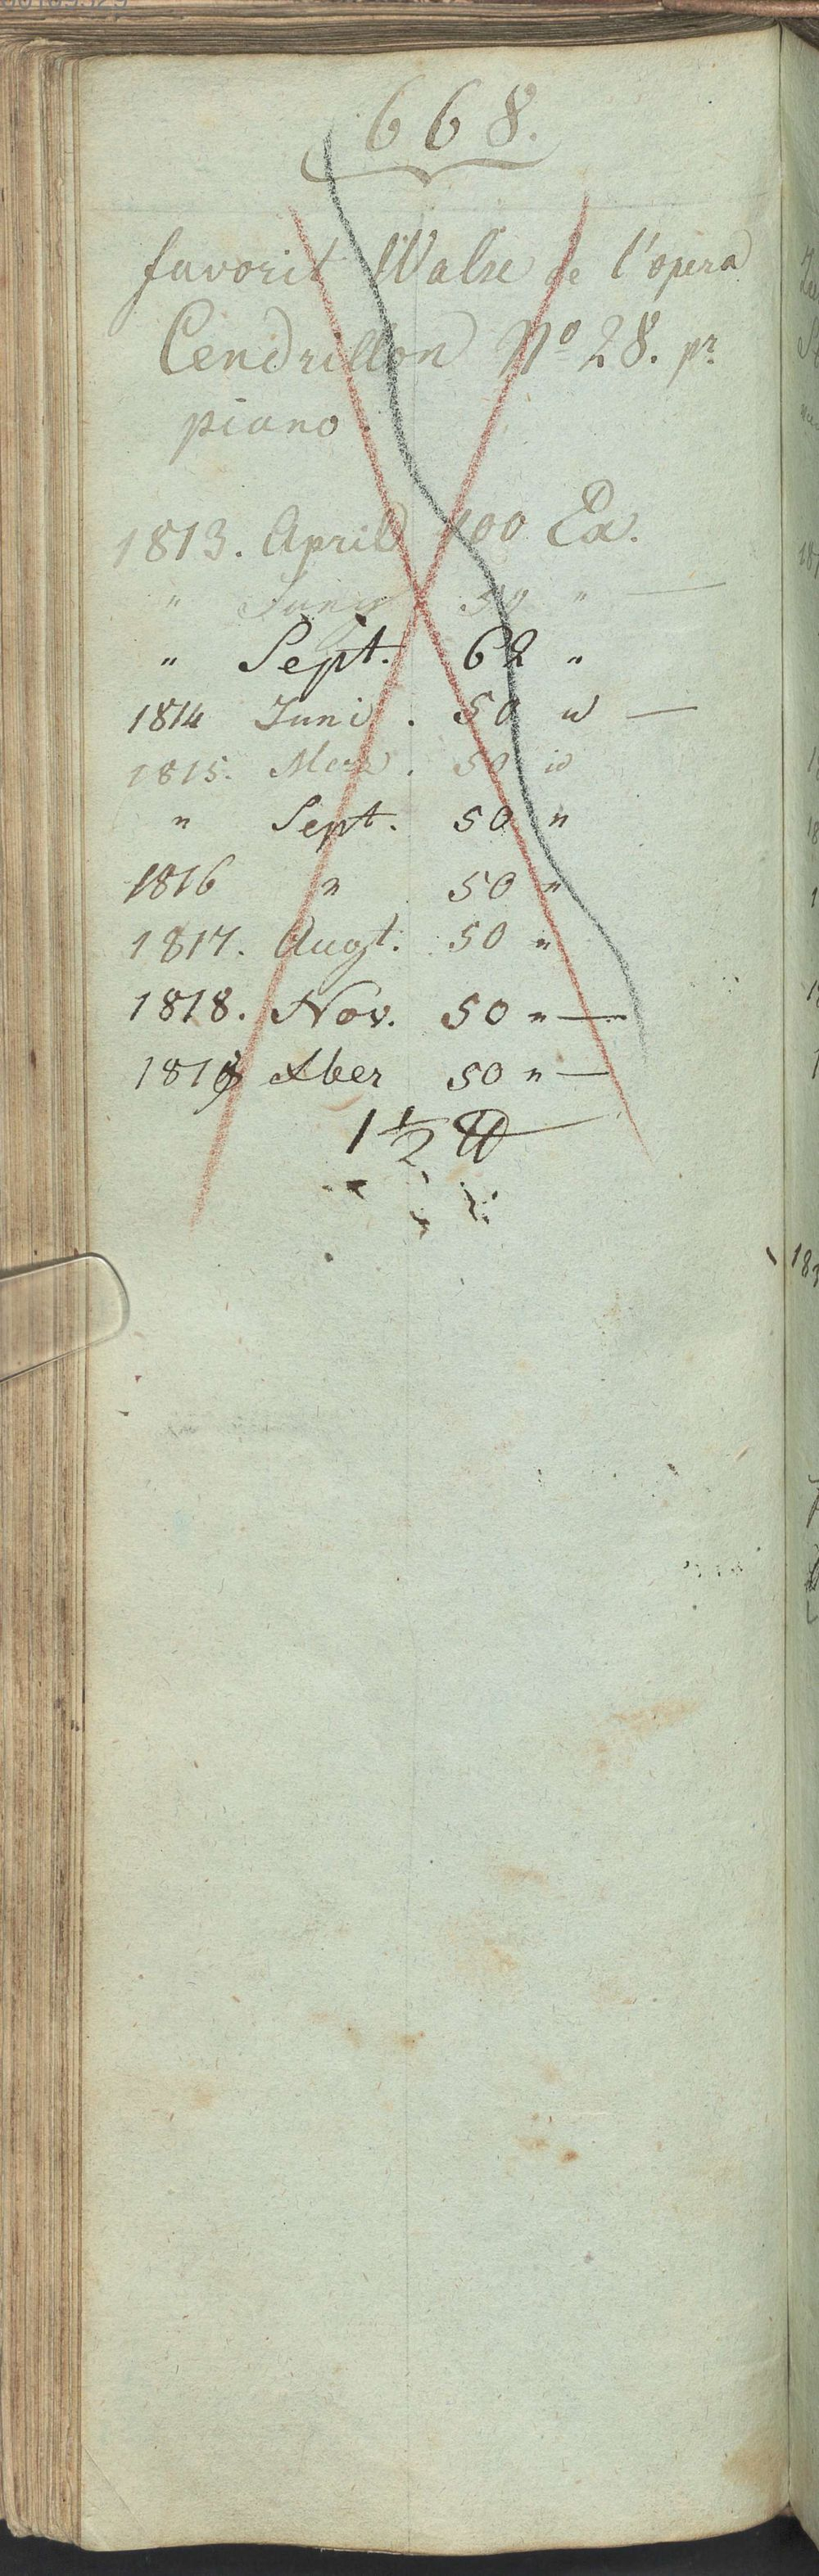 668.
favorit Walse de l'opera
Cendrillon No 28. pr
piano.
1813. April 100 Ex.
" Juny 50 " —
" Sept. 62 "
1814 Juni. 50 id —
1815. Merz. 50 id
" Sept. 50 "
1816 " 50 "
1817. Augt. 50 "
1818. Nov. 50 " —
1819 Xber 50 " —
1 1/2 ℔